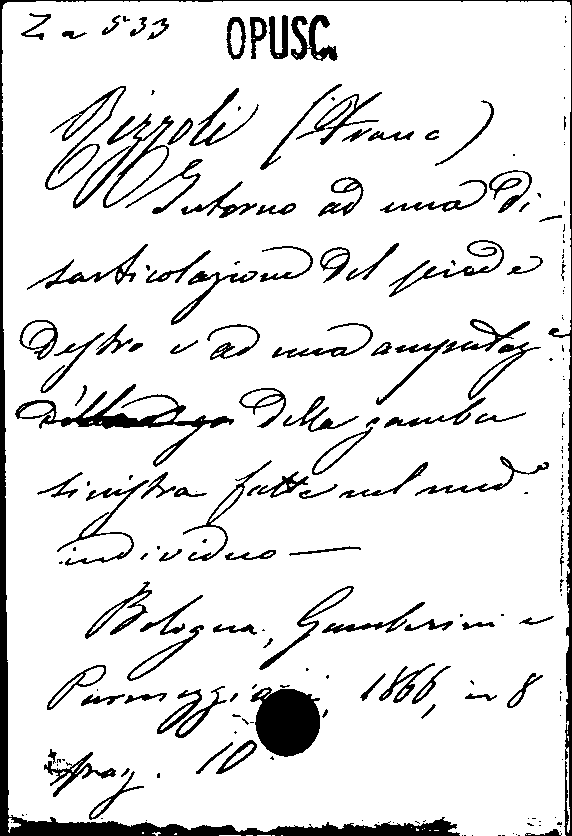 Z a 533 OPUSC.
Rizzoli (Franc)
Intorno ad una di-
sarticolazione del piede
destro e ad una amputaz.e
della gamba
sinistra fatte nel med.o
individuo —
Bologna, Gamberini e
Parmeggiani, 1866, in 8
pag. 10